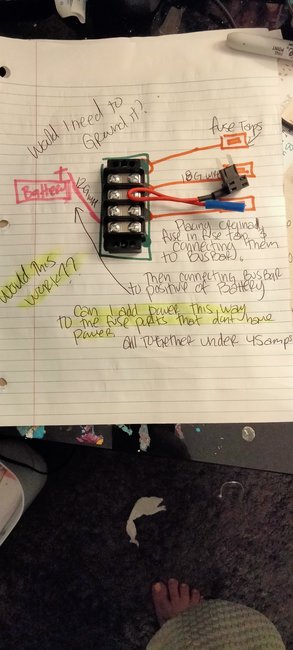 Would I need to
Ground it?
fuse Taps
+
Battery
12G wire
18G wire
Placing original
fuse in fuse taps &
connecting them
to BusBar.
Then connecting BusBar
to positive of Battery
Would This
work??
Can I add power this way
to the fuse parts that dont have
power.
All Together under 45amps